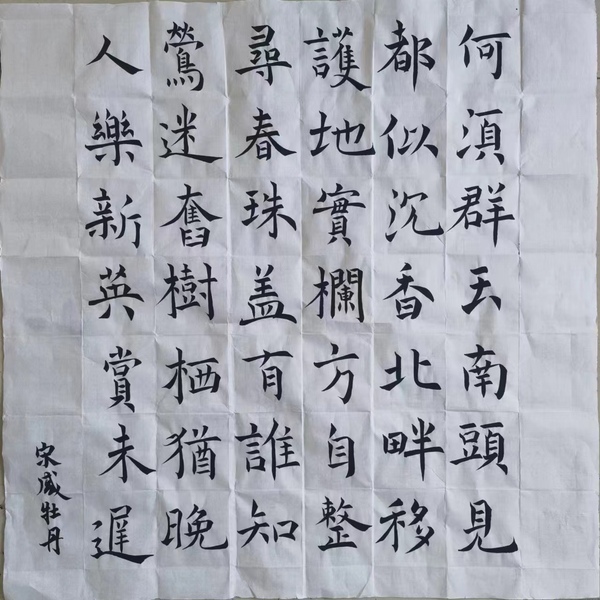 何湏群玉南頭見
都似沉香北畔移
護地實欄方自整
尋春珠盖有誰知
鶯迷舊樹栖猶晚
人樂新英賞未遲
宋牡丹